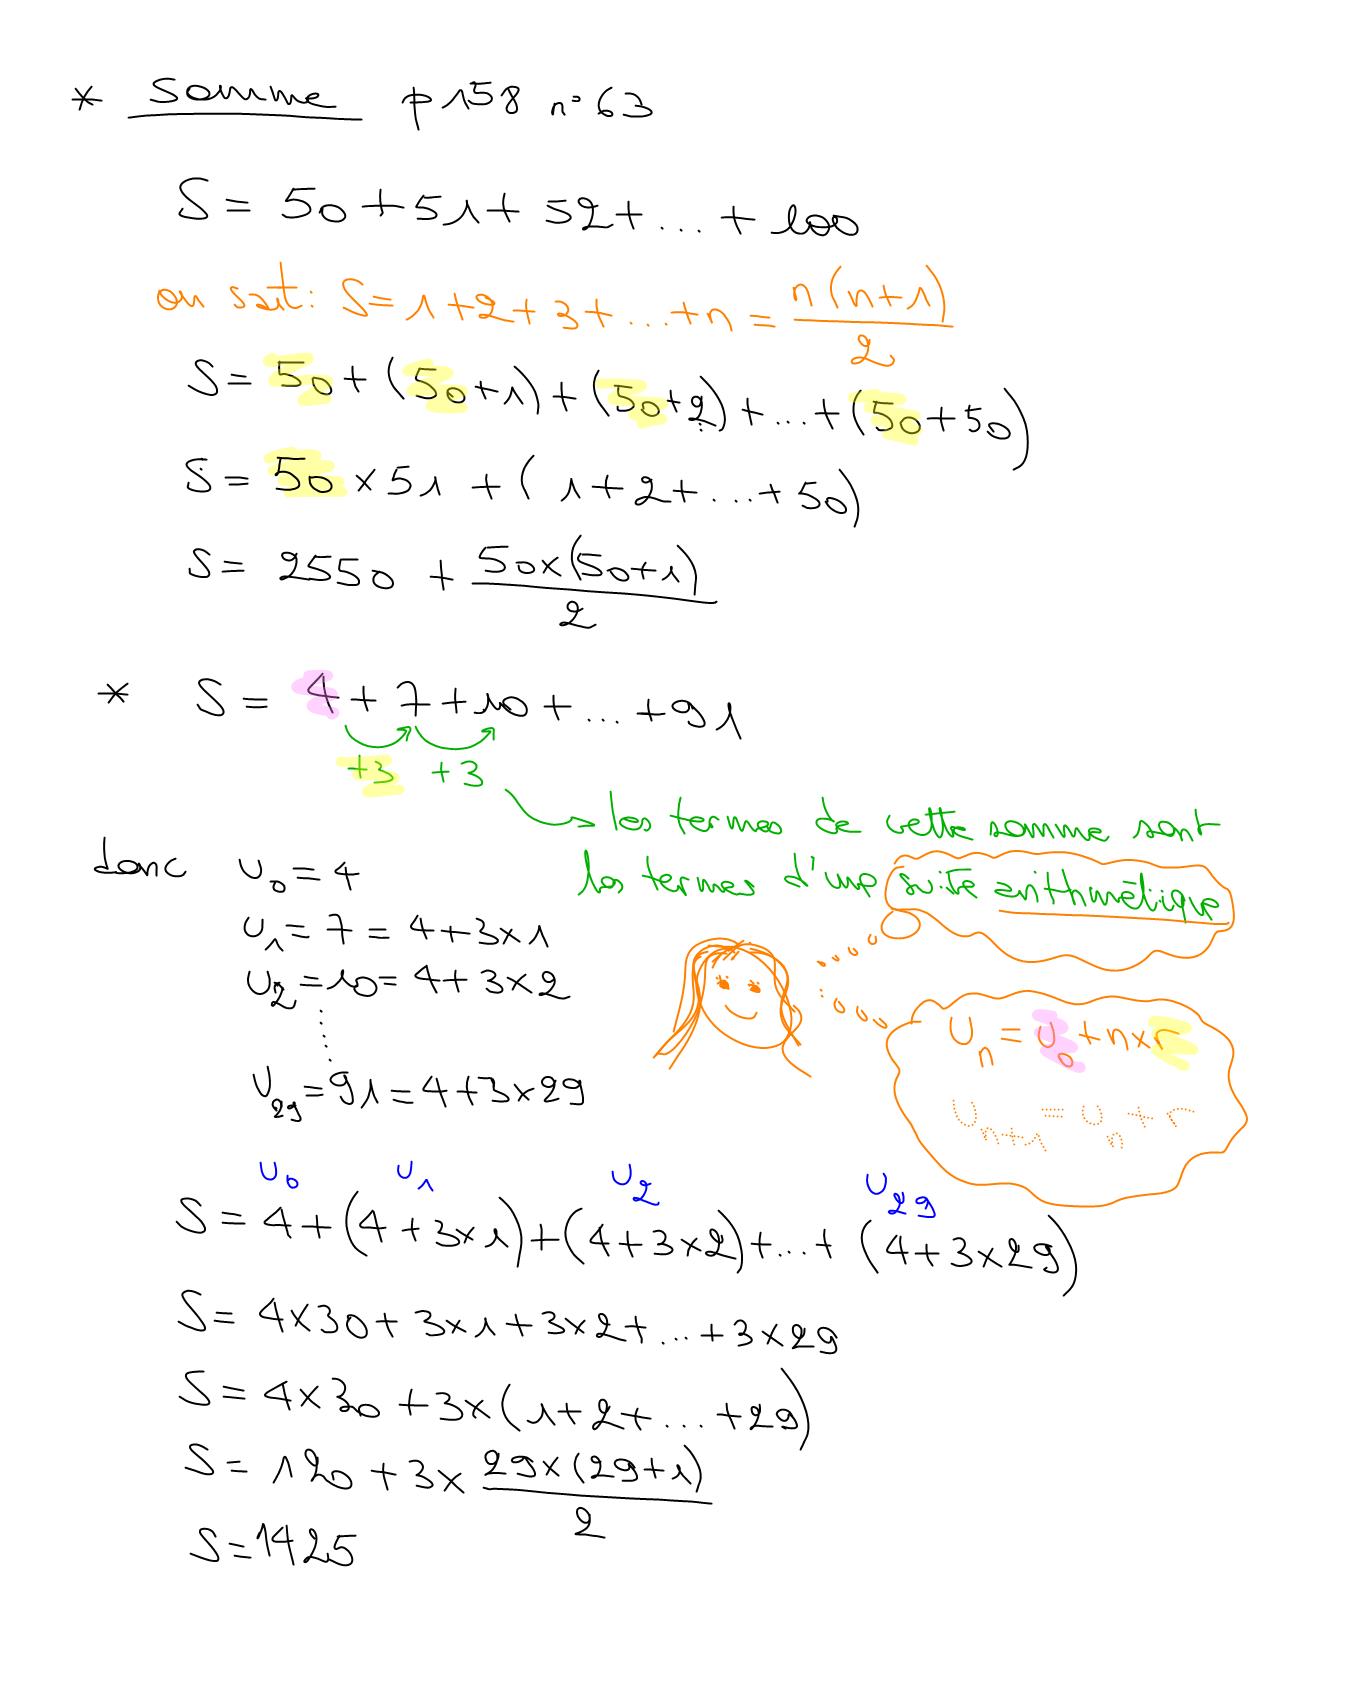 * Somme p158 n°63
S = 50 + 51 + 52 + ... + 100
on sait : S = 1 + 2 + 3 + ... + n = n(n+1)/2
S = 50 + (50+1) + (50+2) + ... + (50+50)
S = 50 × 51 + (1 + 2 + ... + 50)
S = 2550 + 50×(50+1)/2
* S = 4 + 7 + 10 + ... + 91
+3 +3
les termes de cette somme sont
les termes d'une suite arithmétique
donc U₀ = 4
U₁ = 7 = 4 + 3×1
U₂ = 10 = 4 + 3×2
U₂₉ = 91 = 4 + 3×29
Uₙ = U₀ + n×r
Uₙ₊₁ = Uₙ + r
U₀ U₁ U₂ U₂₉
S = 4 + (4 + 3×1) + (4 + 3×2) + ... + (4 + 3×29)
S = 4×30 + 3×1 + 3×2 + ... + 3×29
S = 4×30 + 3×(1 + 2 + ... + 29)
S = 120 + 3× 29×(29+1)/2
S = 1425